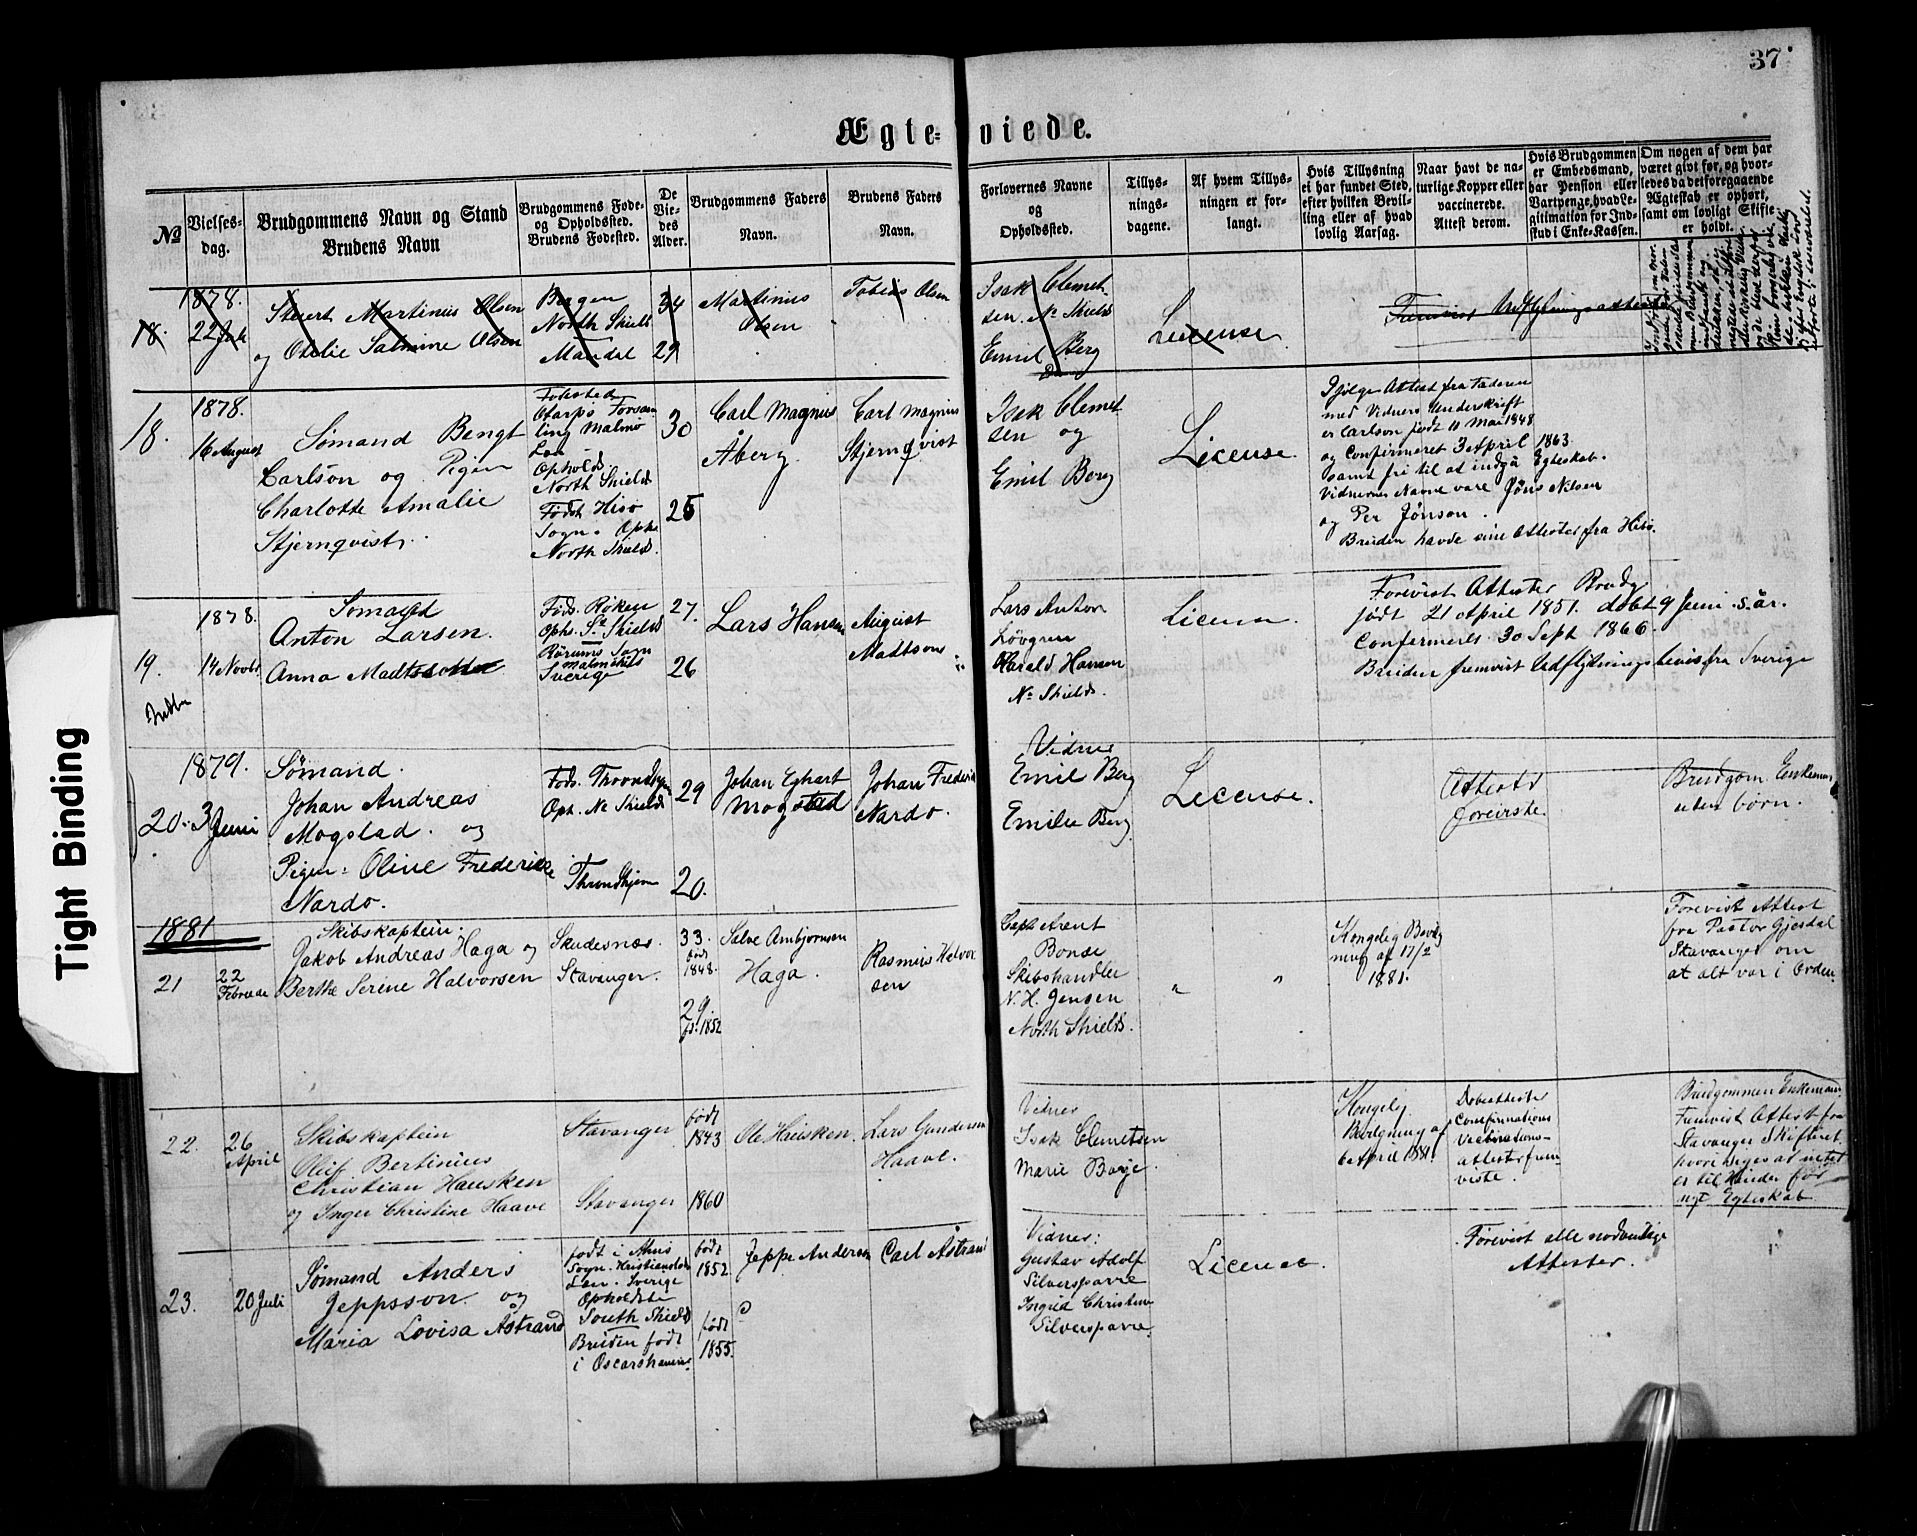 37
Ægte-viede.
№
Vielses-
dag.
Brudgommens Navn og Stand
Brudens Navn
Brudgommens Føde-
og Opholdssted.
Brudens Fødested.
De
Vie-
des
Alder.
Brudgommens Faders
Navn.
Brudens Faders
Navn.
Forlovernes Navne
og
Opholdssted.
Tillys-
nings-
dagene.
Af hvem Tillys-
ningen er for-
langt.
Hvis Tillysning
ei har fundet Sted,
efter hvilken Bevil-
ling eller af hvad
lovlig Aarsag.
Naar havt de na-
turlige Kopper eller
vaccinerede.
Attest derom.
Hvis Brudgommen
er Embedsmand,
har Pension eller
Vartpenge, hvad Le-
gitimation for Ind-
skud i Enke-Kassen.
Om nogen af dem har
været givt før, og hvor-
ledes da det foregaaende
Ægteskab er ophørt,
samt om lovligt Skifte
er holdt.
1878.
18.
22 Juli
Martinius Olsen
og Otelie Salmine Olsen
Bergen
North Shields
Mandal
34
29
Martinius
Olsen
Tobias Olsen
Isak Clemet
sen. No Shields
Emil Berg
License
1878.
18.
16 August
Sømand Bengt
Carlson og Pigen
Charlotte Amalie
Stjernqvist.
Fødested
ling Malmø
Len
Opholds
North Shields
Født Hisø
Sogn. Oph.
North Shields.
30
25
Carl Magnus
Åberg.
Carl Magnus
Stjernqvist
Isak Clemet
sen og
Emil Berg
License.
Ifølge Attest fra Faderen
med Vidners Underskrift
er Carlson født 11 Mai 1848
og Confirmeret 3 April 1863
samt fri til at indgå Egteskab.
Vidnernes Navne vare Jöns Nilson
og Per Jönson.
Bruden havde sine Attester fra Hisø.
1878.
19.
14 Novbr.
Sømand
Anton Larsen.
Anna Madtsdotter
Føds. Røken
Ophs. So Shields
Rörums Sogn
Sverige
27.
26
Lars Hansen
August
Madtson
Lars Anton
Lövgren
Harald Hansen
No Shields.
License.
Forevist Attester Brudg
født 21 April 1851. døbt 9 Juni s. år.
Confirmeret 30 Sept 1866.
Bruden fremvist Udflytningsbevis fra Sverige
1879.
20. 3 Juni
Sømand.
Johan Andreas
Mogstad. og
Pigen: Oline Frederikke
Nardo.
Føds. Throndhjem
Oph. No Shields
Throndhjem
29
20.
Johan Eghart
Mogstad
Johan Frederik
Nardo.
Vidner
Emil Berg
Emilie Berg
License.
Attester
foreviste.
Brudgom. Enkemand
uden børn.
1881
21
22
Februar
Skibskaptein:
Jakob Andreas Haga og
Berthe Serine Halvorsen
Skudesnæs.
Stavanger.
33.
født
1848.
29.
f. 1852
Salve Ambjørnsen
Haga.
Rasmus Halvor
sen
Capt Arent
Bonde
Skibshandler
N. H. Jensen
North Shields.
"
"
Kongelig Bevilg
ning af 17/2
1881.
Forevist Attest
fra Pastor Gjesdal
Stavanger om
at alt var i Orden
22.
26
April
Skibskaptein
Oluf Bertinius
Christian Hausken
og Inger Christine Haave
Stavanger
Stavanger
født
1843
1860
Ole Hausken.
Lars Gundersen
Haave.
Vidner
Isak Clemetsen
Marie Borje.
Kongelig
Bevilgning af
6 April 1881.
Døbeattester
Confirmations
Vaccinations-
attester frem
viste.
Brudgommen Enkemand
Fremvist Attest fra
Stavanger Skifteret
hvori siges at intet
er til Hinder for
nyt Egteskab.
23.
20 Juli
Sømand Anders
Jeppsson. og
Maria Lovisa Åstrand
født i
Sogn. Kristianstads
Len. Sverige
Opholdste
South Shields
Bruden født
i Oscarshamn.
født
1852
født
1855.
Jeppe Anderson
Carl Åstrand
Vidner:
Gustav Adolf
Silversparre
Ingrid Christine
Silversparre.
License.
Forevist alle nødvendige
Attester.
Tight Binding